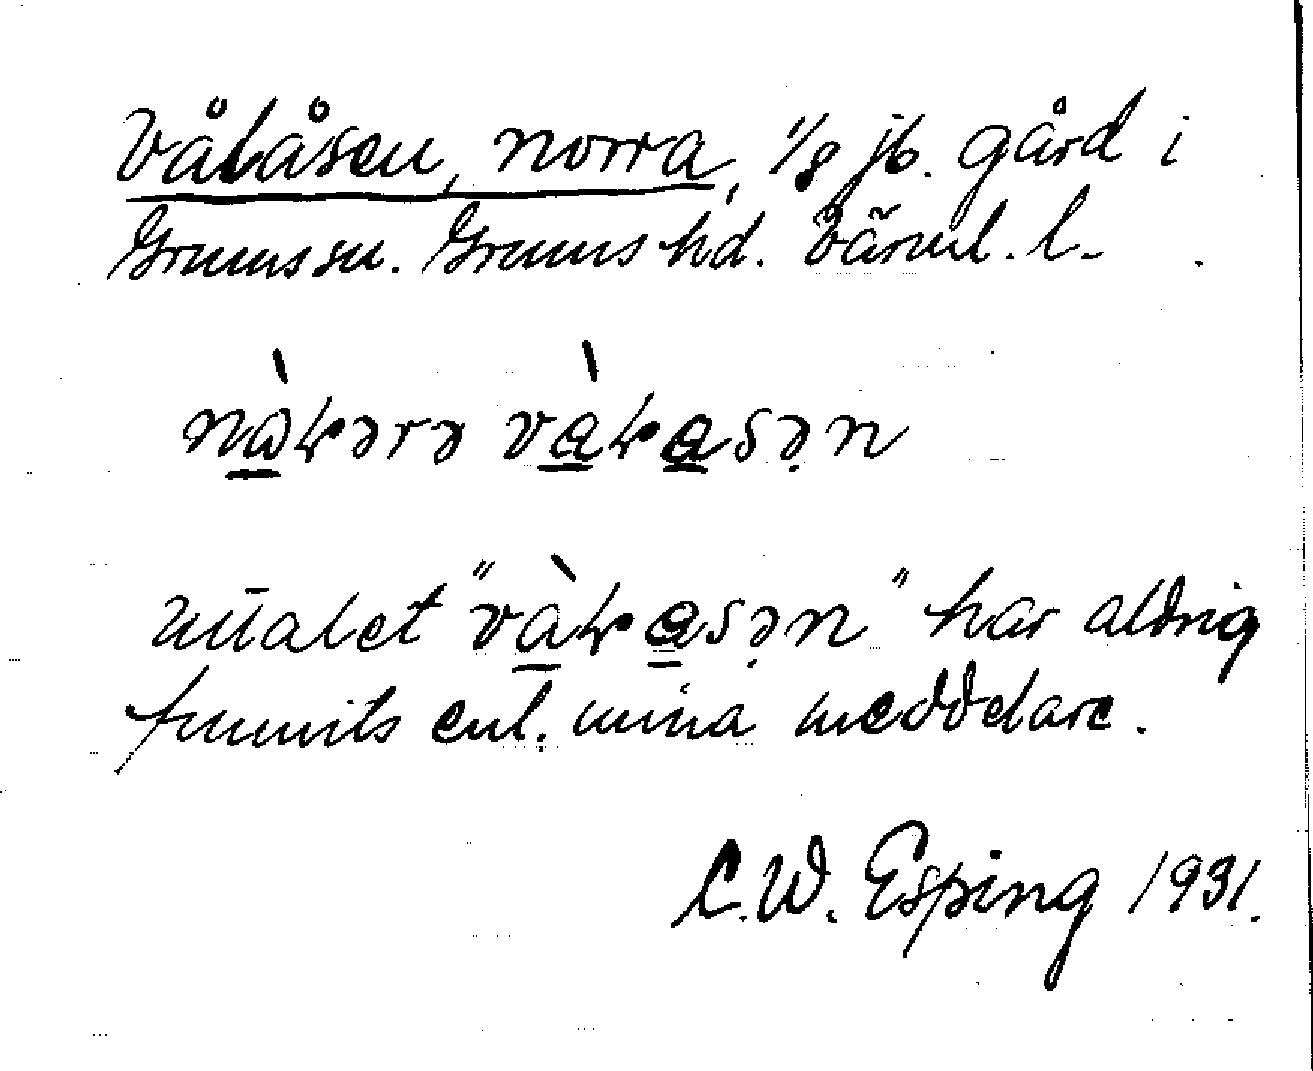 Vålåsen, norra, 1/8 jb. gård i
Grums sn. Grums hd. Värml. l.
nɷ̀ɽərə và̱ɽa̱sə̣n
målet "và̱ɽa̱sə̣n" har aldrig
funnits enl. mina meddelare.
C.W. Esping 1931.